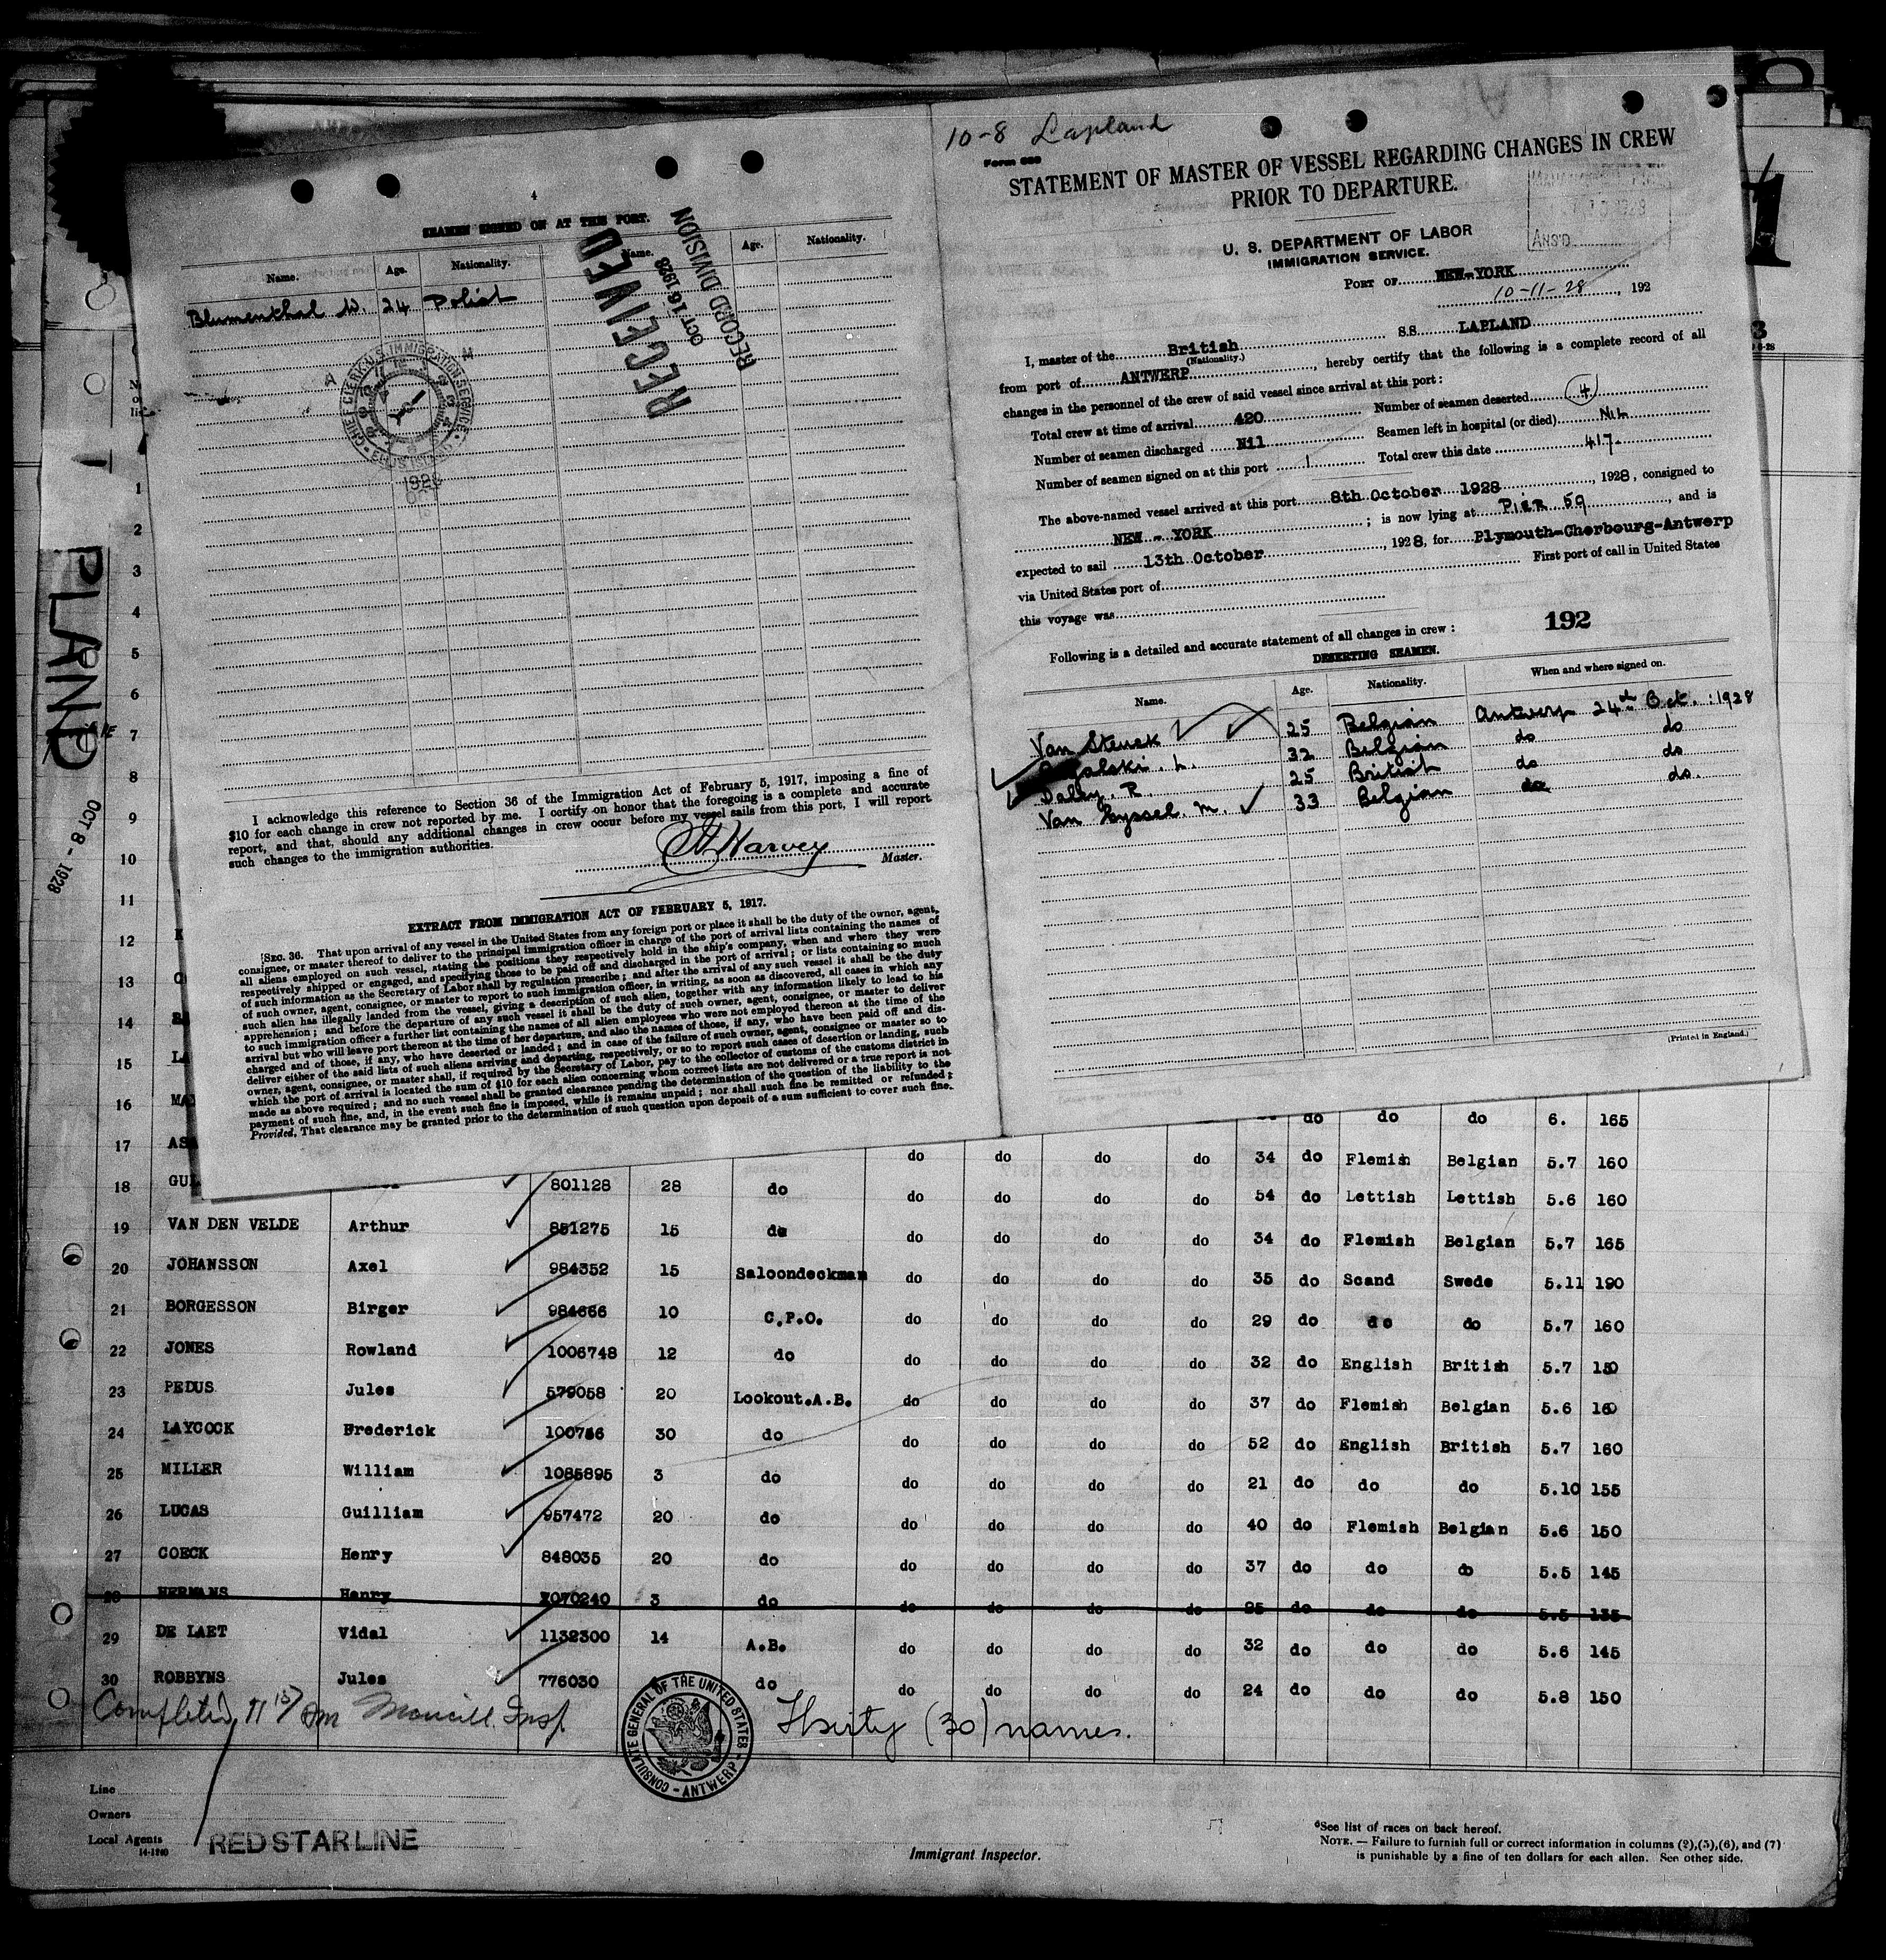 4
SEAMEN SIGNED ON AT THIS PORT.
Name. Age. Nationality. Name. Age. Nationality.
Blumenthal W. 24 Polish
RECEIVED
OCT 16 1928
RECORD DIVISION
CHIEF CLERK U.S. IMMIGRATION SERVICE
ELLIS ISLAND
I acknowledge this reference to Section 36 of the Immigration Act of February 5, 1917, imposing a fine of
$10 for each change in crew not reported by me. I certify on honor that the foregoing is a complete and accurate
report, and that, should any additional changes in crew occur before my vessel sails from this port, I will report
such changes to the immigration authorities.
Harvey
Master.
EXTRACT FROM IMMIGRATION ACT OF FEBRUARY 5, 1917.
SEC. 36. That upon arrival of any vessel in the United States from any foreign port or place it shall be the duty of the owner, agent,
consignee, or master thereof to deliver to the principal immigration officer in charge of the port of arrival lists containing the names of
all aliens employed on such vessel, stating the positions they respectively hold in the ship's company, when and where they were
respectively shipped or engaged, and specifying those to be paid off and discharged in the port of arrival; or lists containing so much
of such information as the Secretary of Labor shall by regulation prescribe; and after the arrival of any such vessel it shall be the duty
of such owner, agent, consignee, or master to report to such immigration officer, in writing, as soon as discovered, all cases in which any
such alien has illegally landed from the vessel, giving a description of such alien, together with any information likely to lead to his
apprehension; and before the departure of any such vessel it shall be the duty of such owner, agent, consignee, or master to deliver
to such immigration officer a further list containing the names of all alien employees who were not employed thereon at the time of the
arrival but who will leave port thereon at the time of her departure, and also the names of those, if any, who have been paid off and dis-
charged and of those, if any, who have deserted or landed; and in case of the failure of such owner, agent, consignee or master so to
deliver either of the said lists of such aliens arriving and departing, respectively, or so to report such cases of desertion or landing, such
owner, agent, consignee, or master shall, if required by the Secretary of Labor, pay to the collector of customs of the customs district in
which the port of arrival is located the sum of $10 for each alien concerning whom correct lists are not delivered or a true report is not
made as above required; and no such vessel shall be granted clearance pending the determination of the question of the liability to the
payment of such fine, and, in the event such fine is imposed, while it remains unpaid; nor shall such fine be remitted or refunded:
Provided, That clearance may be granted prior to the determination of such question upon deposit of a sum sufficient to cover such fine.
10-8 Lapland
STATEMENT OF MASTER OF VESSEL REGARDING CHANGES IN CREW
PRIOR TO DEPARTURE.
ANS'D
U. S. DEPARTMENT OF LABOR
IMMIGRATION SERVICE.
PORT OF NEW-YORK
10-11-28, 192
I, master of the British S.S. LAPLAND
(Nationality.)
from port of ANTWERP, hereby certify that the following is a complete record of all
changes in the personnel of the crew of said vessel since arrival at this port:
Total crew at time of arrival 420 Number of seamen deserted 4
Number of seamen discharged Nil Seamen left in hospital (or died) Nil
Number of seamen signed on at this port 1 Total crew this date 417
The above-named vessel arrived at this port 8th October 1928, 1928, consigned to
NEW - YORK; is now lying at Pier 59, and is
expected to sail 13th October, 1928, for Plymouth-Cherbourg-Antwerp
via United States port of First port of call in United States
this voyage was
192
Following is a detailed and accurate statement of all changes in crew:
DESERTING SEAMEN.
Name. Age. Nationality. When and where signed on.
Van Steuck 25 Belgian Antwerp 24th Oct. 1928
32 Belgian do do
Dally. R. 25 British do do
Van Hyssel. M. 33 Belgian do do.
(Printed in England.)
PLAND
OCT 8 - 1928
1
1
2
3
4
5
6
7
8
9
10
11
12
13
14
15
16 do do do 6. 165
17 do do do do 34 do Flemish Belgian 5.7 160
18 801128 28 do do do do do 54 do Lettish Lettish 5.6 160
19 VAN DEN VELDE Arthur 851275 15 do do do do do 34 do Flemish Belgian 5.7 165
20 JOHANSSON Axel 984352 15 Saloondeckman do do do do 35 do Scand Swede 5.11 190
21 BORGESSON Birger 984686 10 C.P.O. do do do do 29 do do do 5.7 160
22 JONES Rowland 1006748 12 do do do do do 32 do English British 5.7 150
23 PEDUS Jules 579058 20 Lookout.A.B. do do do do 37 do Flemish Belgian 5.6 160
24 LAYCOCK Frederick 100766 30 do do do do do 52 do English British 5.7 160
25 MILLER William 1085895 3 do do do do do 21 do do do 5.10 155
26 LUCAS Guilliam 957472 20 do do do do do 40 do Flemish Belgian 5.6 150
27 COECK Henry 848035 20 do do do do do 37 do do do 5.5 145
28 HERMANS Henry 1070240 3 do do do do do 25 do do do 5.5 135
29 DE LAET Vidal 1132300 14 A.B. do do do do 32 do do do 5.6 145
30 ROBBYNS Jules 776030 do do do do do 24 do do do 5.8 150
Completed 11 15/ am Insp
Thirty (30) names.
CONSULATE GENERAL OF THE UNITED STATES - ANTWERP -
Line
Owners
Local Agents RED STAR LINE
14-1240
Immigrant Inspector.
See list of races on back hereof.
NOTE. — Failure to furnish full or correct information in columns (2),(5),(6), and (7)
is punishable by a fine of ten dollars for each alien. See other side.